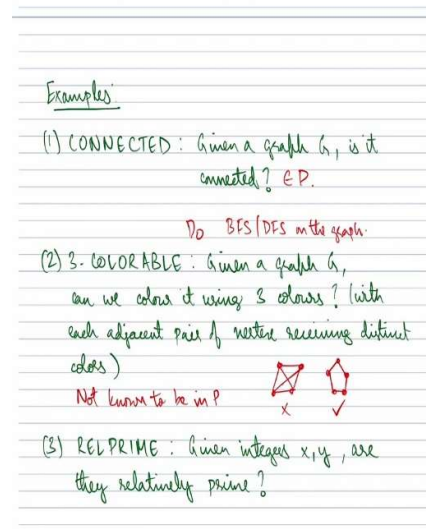 Examples
(1) CONNECTED : Given a graph G, is it
connected? ∈ P.
Do BFS/DFS on the graph.
(2) 3-COLORABLE : Given a graph G,
can we colour it using 3 colours? (with
each adjacent pair of vertices receiving distinct
colors)
Not known to be in P
(3) RELPRIME : Given integers x, y, are
they relatively prime?